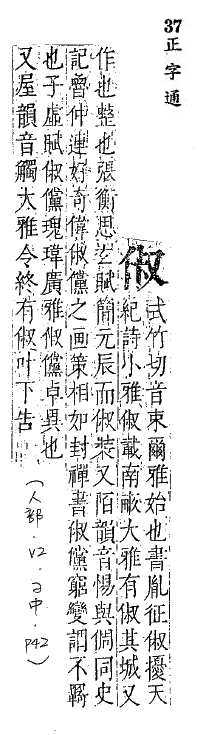 37正字通
俶
式竹切音束爾雅始也書胤征俶擾天
紀詩小雅俶載南畝大雅有俶其城又
作也整也張衡思玄賦簡元辰而俶裝又陌韻音惕與倜同史
記魯仲連好奇偉俶儻之画策相如封禪書俶儻窮變謂不羈
也子虛賦俶儻瑰瑋廣雅俶儻卓異也
又屋韻音觸大雅令終有俶叶下告
(人部.V2.子中.P42)